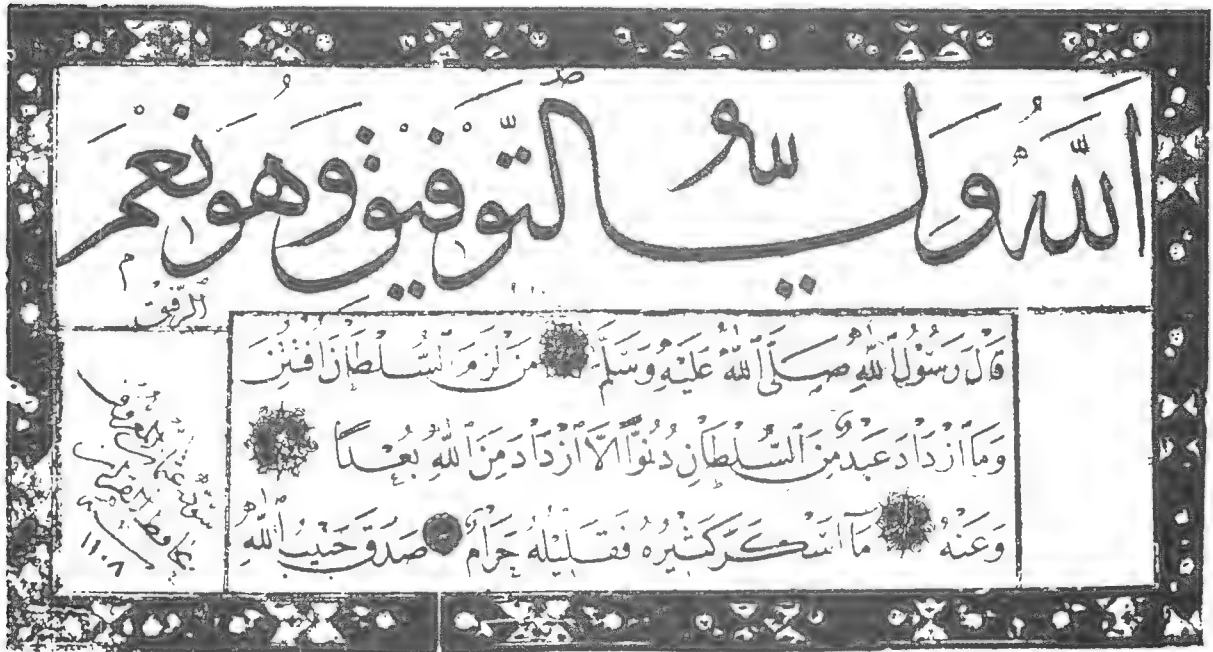 اَللّٰهُ وَلِيُّ التَّوْفِيقِ وَهُوَ نِعْمَ
الرَّفِيقُ
قَالَ رَسُولُ اللّٰهِ صَلَّى اللّٰهُ عَلَيْهِ وَسَلَّمَ مَنْ لَزِمَ السُّلْطَانَ افْتُتِنَ
وَمَا ازْدَادَ عَبْدٌ مِنَ السُّلْطَانِ دُنُوًّا اِلَّا ازْدَادَ مِنَ اللّٰهِ بُعْدًا
وَعَنْهُ مَا اَسْكَرَ كَثِيرُهُ فَقَلِيلُهُ حَرَامٌ صَدَقَ حَبِيبُ اللّٰهِ
سوّده عثمان المعروف
بحافظ القرآن